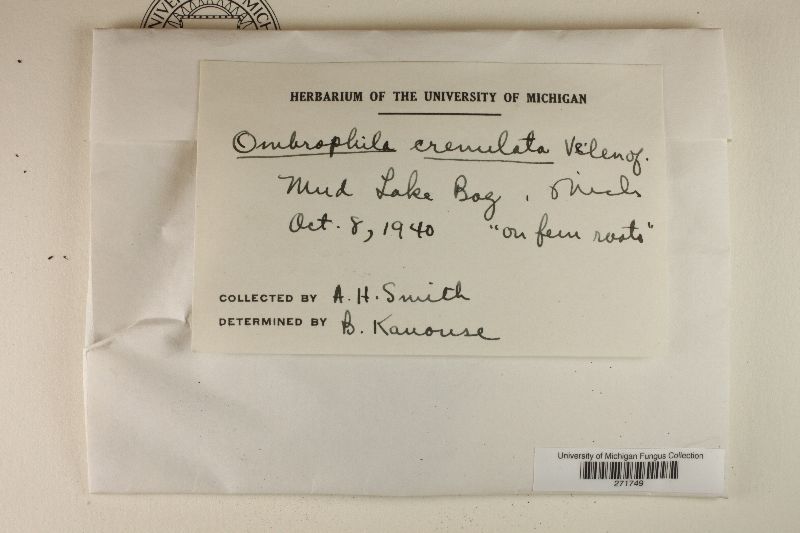 UNIVERSITY OF MICHIGAN
HERBARIUM OF THE UNIVERSITY OF MICHIGAN
Ombrophila crenulata Velenof.
Mud Lake Bog, Mich
Oct. 8, 1940 "on fern roots"
COLLECTED BY A. H. Smith
DETERMINED BY B. Kanouse
University of Michigan Fungus Collection
271749